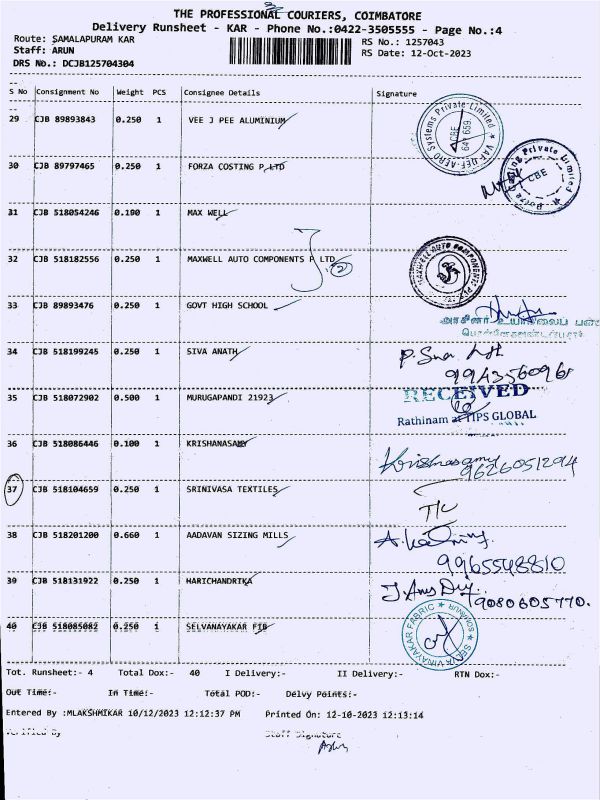 THE PROFESSIONAL COURIERS, COIMBATORE
Delivery Runsheet - KAR - Phone No.:0422-3505555 - Page No.:4
Route: SAMALAPURAM KAR
RS No.: 1257043
Staff: ARUN
RS Date: 12-Oct-2023
DRS No.: DCJB125704304
S No Consignment No Weight PCS Consignee Details Signature
29 CJB 89893843 0.250 1 VEE J PEE ALUMINIUM
30 CJB 89797465 0.250 1 FORZA COSTING P LTD
31 CJB 518054246 0.190 1 MAX WELL
32 CJB 518182556 0.250 1 MAXWELL AUTO COMPONENTS P LTD
2
33 CJB 89893476 0.250 1 GOVT HIGH SCHOOL
34 CJB 518199245 0.250 1 SIVA ANATH
35 CJB 518072902 0.500 1 MURUGAPANDI 21923
RECEIVED
Rathinam at TIPS GLOBAL
36 CJB 518086446 0.100 1 KRISHANASAMY
Krishnasamy
9626051294
37 CJB 518104659 0.250 1 SRINIVASA TEXTILES
38 CJB 518201200 0.660 1 AADAVAN SIZING MILLS
9965548810
39 CJB 518131922 0.250 1 HARICHANDRIKA
9080605770.
40 CJB 518085082 0.250 1 SELVANAYAKAR FIB
Tot. Runsheet:- 4 Total Dox:- 40 I Delivery:- II Delivery:- RTN Dox:-
Out Time:- In Time:- Total POD:- Delvy Points:-
Entered By :MLAKSHMIKAR 10/12/2023 12:12:37 PM Printed On: 12-10-2023 12:13:14
Verified By Staff Signature